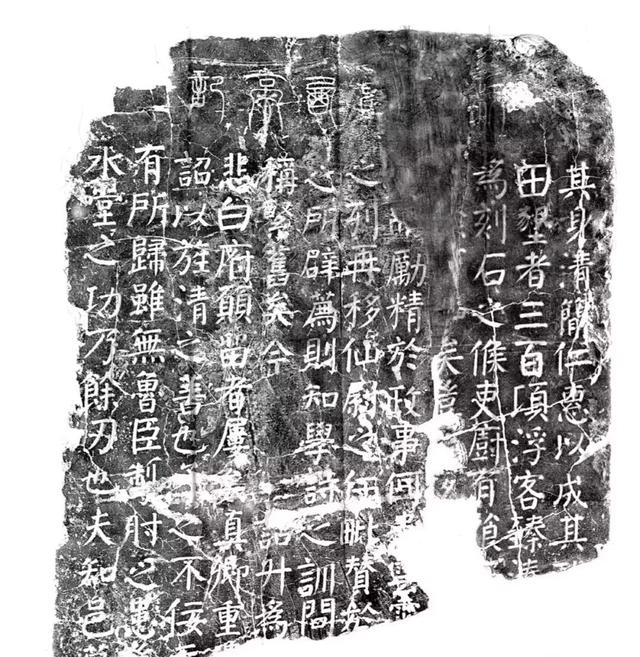 亭記
其身清簡仁惠以成其
田墾者三百頃浮客臻
為刻石之候吏廚有
矣豈
勵精於政事何
之列再移仙尉之任毗贊於
心所辟薦則知學詩之訓間
稱緊舊矣今詔升為
悲白府願留者屢真卿重
詔以旌清之善也之不佞
有所歸雖無魯臣掣肘之患
水堂之功乃餘刃也夫知邑